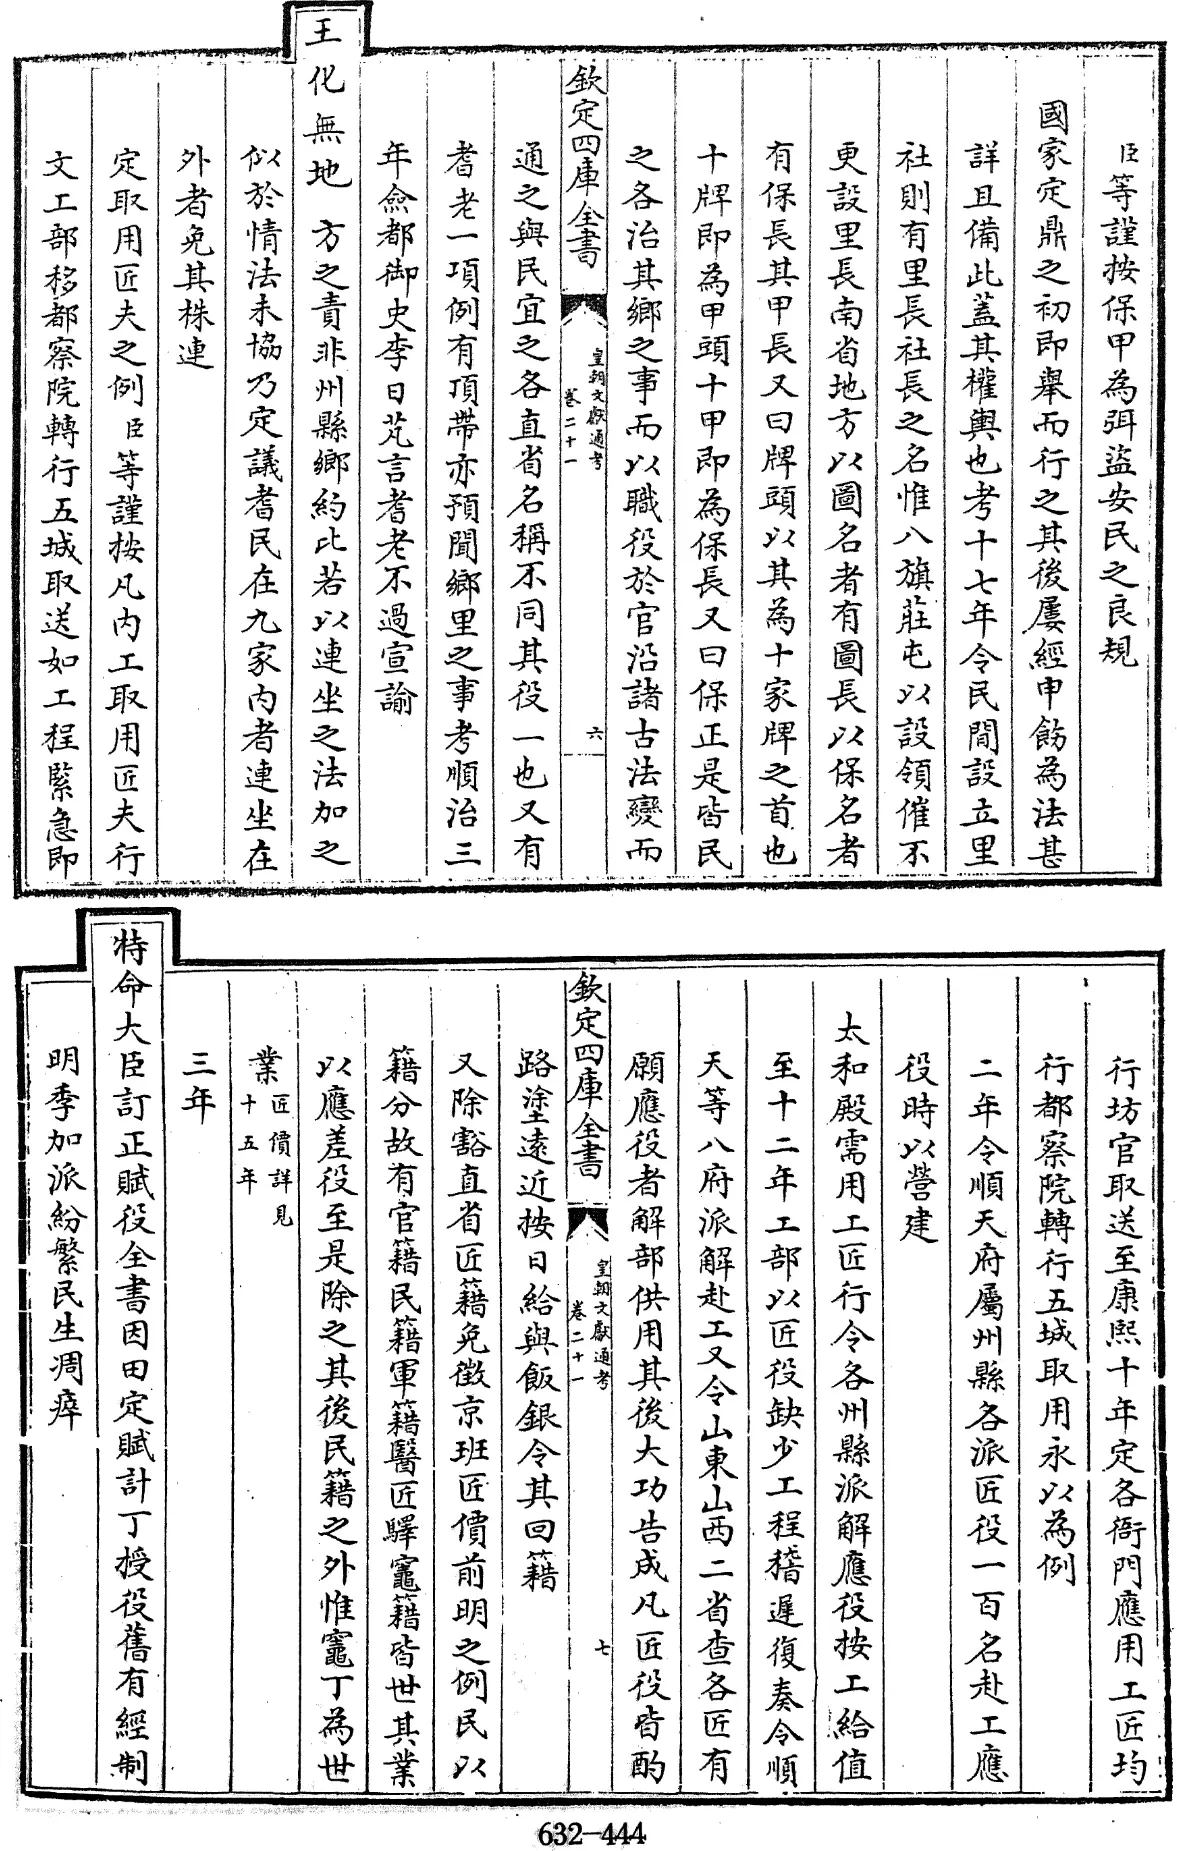 臣等謹按保甲為弭盜安民之良規
國家定鼎之初即舉而行之其後屢經申飭為法甚
詳且備此蓋其權輿也考十七年令民間設立里
社則有里長社長之名惟八旗莊屯以設領催不
更設里長南省地方以圖名者有圖長以保名者
有保長其甲長又曰牌頭以其為十家牌之首也
十牌即為甲頭十甲即為保長又曰保正是皆民
之各治其鄉之事而以職役於官沿諸古法變而
欽定四庫全書
皇朝文獻通考
卷二十一
六
通之與民宜之各直省名稱不同其役一也又有
耆老一項例有頂帶亦預聞鄉里之事考順治三
年僉都御史李日芃言耆老不過宣諭
王化無地方之責非州縣鄉約比若以連坐之法加之
似於情法未協乃定議耆民在九家內者連坐在
外者免其株連
定取用匠夫之例臣等謹按凡内工取用匠夫行
文工部移都察院轉行五城取送如工程緊急即
行坊官取送至康熙十年定各衙門應用工匠均
行都察院轉行五城取用永以為例
二年令順天府屬州縣各派匠役一百名赴工應
役時以營建
太和殿需用工匠行令各州縣派解應役按工給值
至十二年工部以匠役缺少工程稽遲復奏令順
天等八府派解赴工又令山東山西二省查各匠有
願應役者解部供用其後大功告成凡匠役皆酌
欽定四庫全書
皇朝文獻通考
卷二十一
七
路塗遠近按日給與飯銀令其回籍
又除豁直省匠籍免徵京班匠價前明之例民以
籍分故有官籍民籍軍籍醫匠驛竈籍皆世其業
以應差役至是除之其後民籍之外惟竈丁為世
業匠價詳見
十五年
三年
特命大臣訂正賦役全書因田定賦計丁授役舊有經制
明季加派紛繁民生凋瘁
632-444